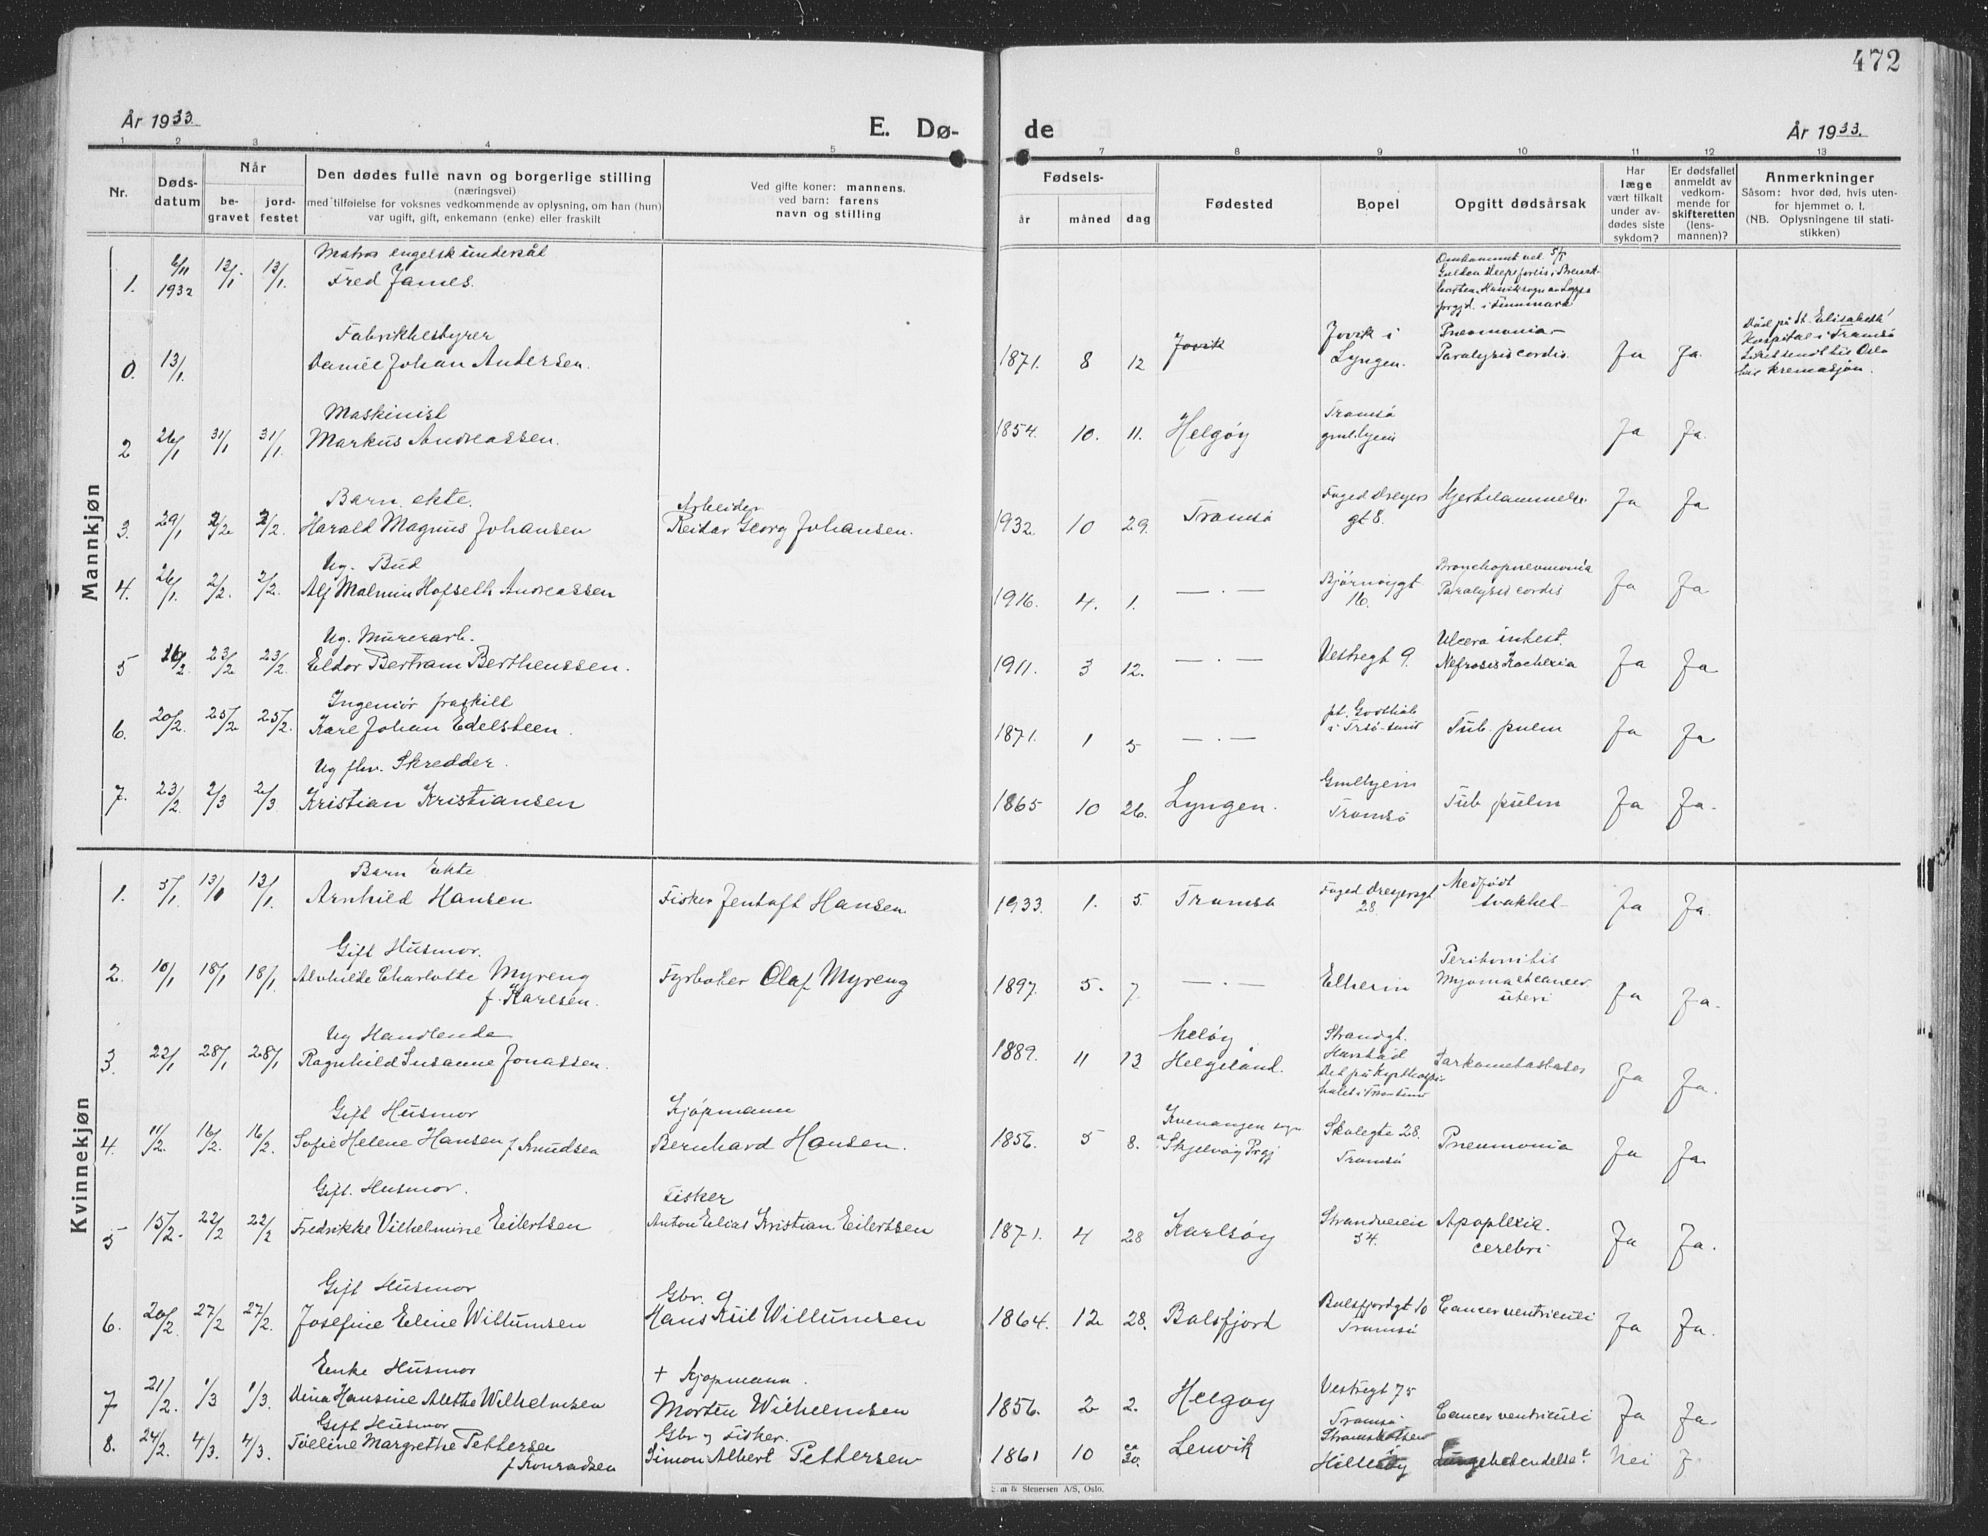 472
År 1933.
E. Dø-
de
År 1933.
1 2 3 4 5
7 8 9 10 11 12 13
Nr.
Døds-
datum
Når
be-
gravet
jord-
festet
Den dødes fulle navn og borgerlige stilling
(næringsvei)
med tilføielse for voksnes vedkommende av oplysning, om han (hun)
var ugift, gift, enkemann (enke) eller fraskilt
Ved gifte koner: mannens.
ved barn: farens
navn og stilling
Fødsels-
år måned dag
Fødested
Bopel
Opgitt dødsårsak
Har
læge
vært tilkalt
under av-
dødes siste
sykdom?
Er dødsfallet
anmeldt av
vedkom-
mende for
skifteretten
(lens-
mannen)?
Anmerkninger
Såsom: hvor død, hvis uten-
for hjemmet o. l.
(NB. Oplysningene til stati-
stikken)
Mannkjøn
Matros engelsk undersåt
1. 6/11 1932 13/1 13/1. Fred James.
Fabrikkbestyrer
0. 13/1. Daniel Johan Andersen. 1871. 8 12 Jovik Jovik i Lyngen. Pneumonia- Paralysis cordis. Ja Ja. Død på St. Elisabeth Hospital i Tromsø Liket sendt til Oslo til kremasjon.
Maskinist
2 26/1 31/1 31/1. Markus Andreassen. 1854. 10. 11. Helgøy Tromsø gmlhjem Ja Ja.
Barn ekte. Arbeider
3. 29/1 2/2 2/2. Harald Magnus Johansen Reidar Georg Johansen. 1932 10 29. Tromsø Foged Dreyers gt 8. Hjertelammelse Ja Ja
Ug. Bud
4. 26/1. 2/2. 2/2. Alf Malmin Hofseth Andreassen 1916. 4. 1. — . — Bjørnøygt 16. Bronchopneumonia Paralysis cordis Ja Ja
Ug. Murerarb.
5 16/2. 23/2 23/2. Eldor Bertram Berthenssen. 1911. 3 12. — . — Vestregt 9. Ulcera intest. Nefrosis Kachexia Ja Ja
Ingeniør fraskilt
6. 20/2. 25/2 25/2. Karl Johan Edelsteen. 1871. 1 5 — . — i Trsø-sund Tub. pulm Ja Ja
Ug fhv. Skredder.
7. 23/2 2/3 2/3. Kristian Kristiansen 1865 10 26. Lyngen. Gmlhjem Tromsø Tub. pulm Ja Ja.
Kvinnekjøn
Barn Ekte
1. 5/1. 13/1 13/1. Arnhild Hansen Fisker Jentoft Hansen. 1933. 1. 5. Tromsø Foged Dreyersgt 28. Medfødt svakhet Ja Ja.
Gift Husmor.
2. 10/1 18/1 18/1. Alvhilde Charlotte Myreng f. Karlsen. Fyrbøter Olaf Myreng 1897. 5. 7. — . — Elheim Peritonitis Myoma et cancer uteri Ja Ja.
Ug Handlende
3. 22/1 28/1 28/1 Ragnhild Susanne Jonassen. 1889. 11 13 Meløy Helgeland. Strandgt. Harstad Sarkometastases Ja Ja.
Gift Husmor Kjøpmann
4. 11/2. 16/2. 16/2. Sofie Helene Hansen f Knudsen Bernhard Hansen. 1856. 5 8. Kvenangen sogn a Skjervøy Prgj Skolegta 28. Tromsø Pneumonia Ja Ja.
Gift. Husmor. Fisker
5 15/2. 22/2 22/2 Fredrikke Vilhelmine Eilertsen Anton Elias Kristian Eilertsen 1871. 4 28 Karlsøy Strandveien 34. Apoplexia cerebri Ja Ja.
Gift Husmor Gbr.
6. 20/2. 27/2 27/2. Josefine Eline Willumsen Hans Kiil Willumsen 1864. 12 28. Balsfjord Balsfjordgt 10 Tromsø Cancer ventriculi Ja Ja.
Enke Husmor + Kjøpmann.
7 21/2. 1/3 1/3. Dina Hansine Alethe Wilhelmsen Morten Wilhelmsen 1856. 2 2. Helgøy Vestregt 75 Tromsø Cancer ventriculi Ja Ja.
Gift Husmor Gbr og Fisker.
8. 24/2. 4/3. 4/3. Margrethe Pettersen f Konradsen Simon Albert Pettersen 1861 10 ca 30. Lenvik Hillesøy Nei J
m & Stenersen A/S, Oslo.